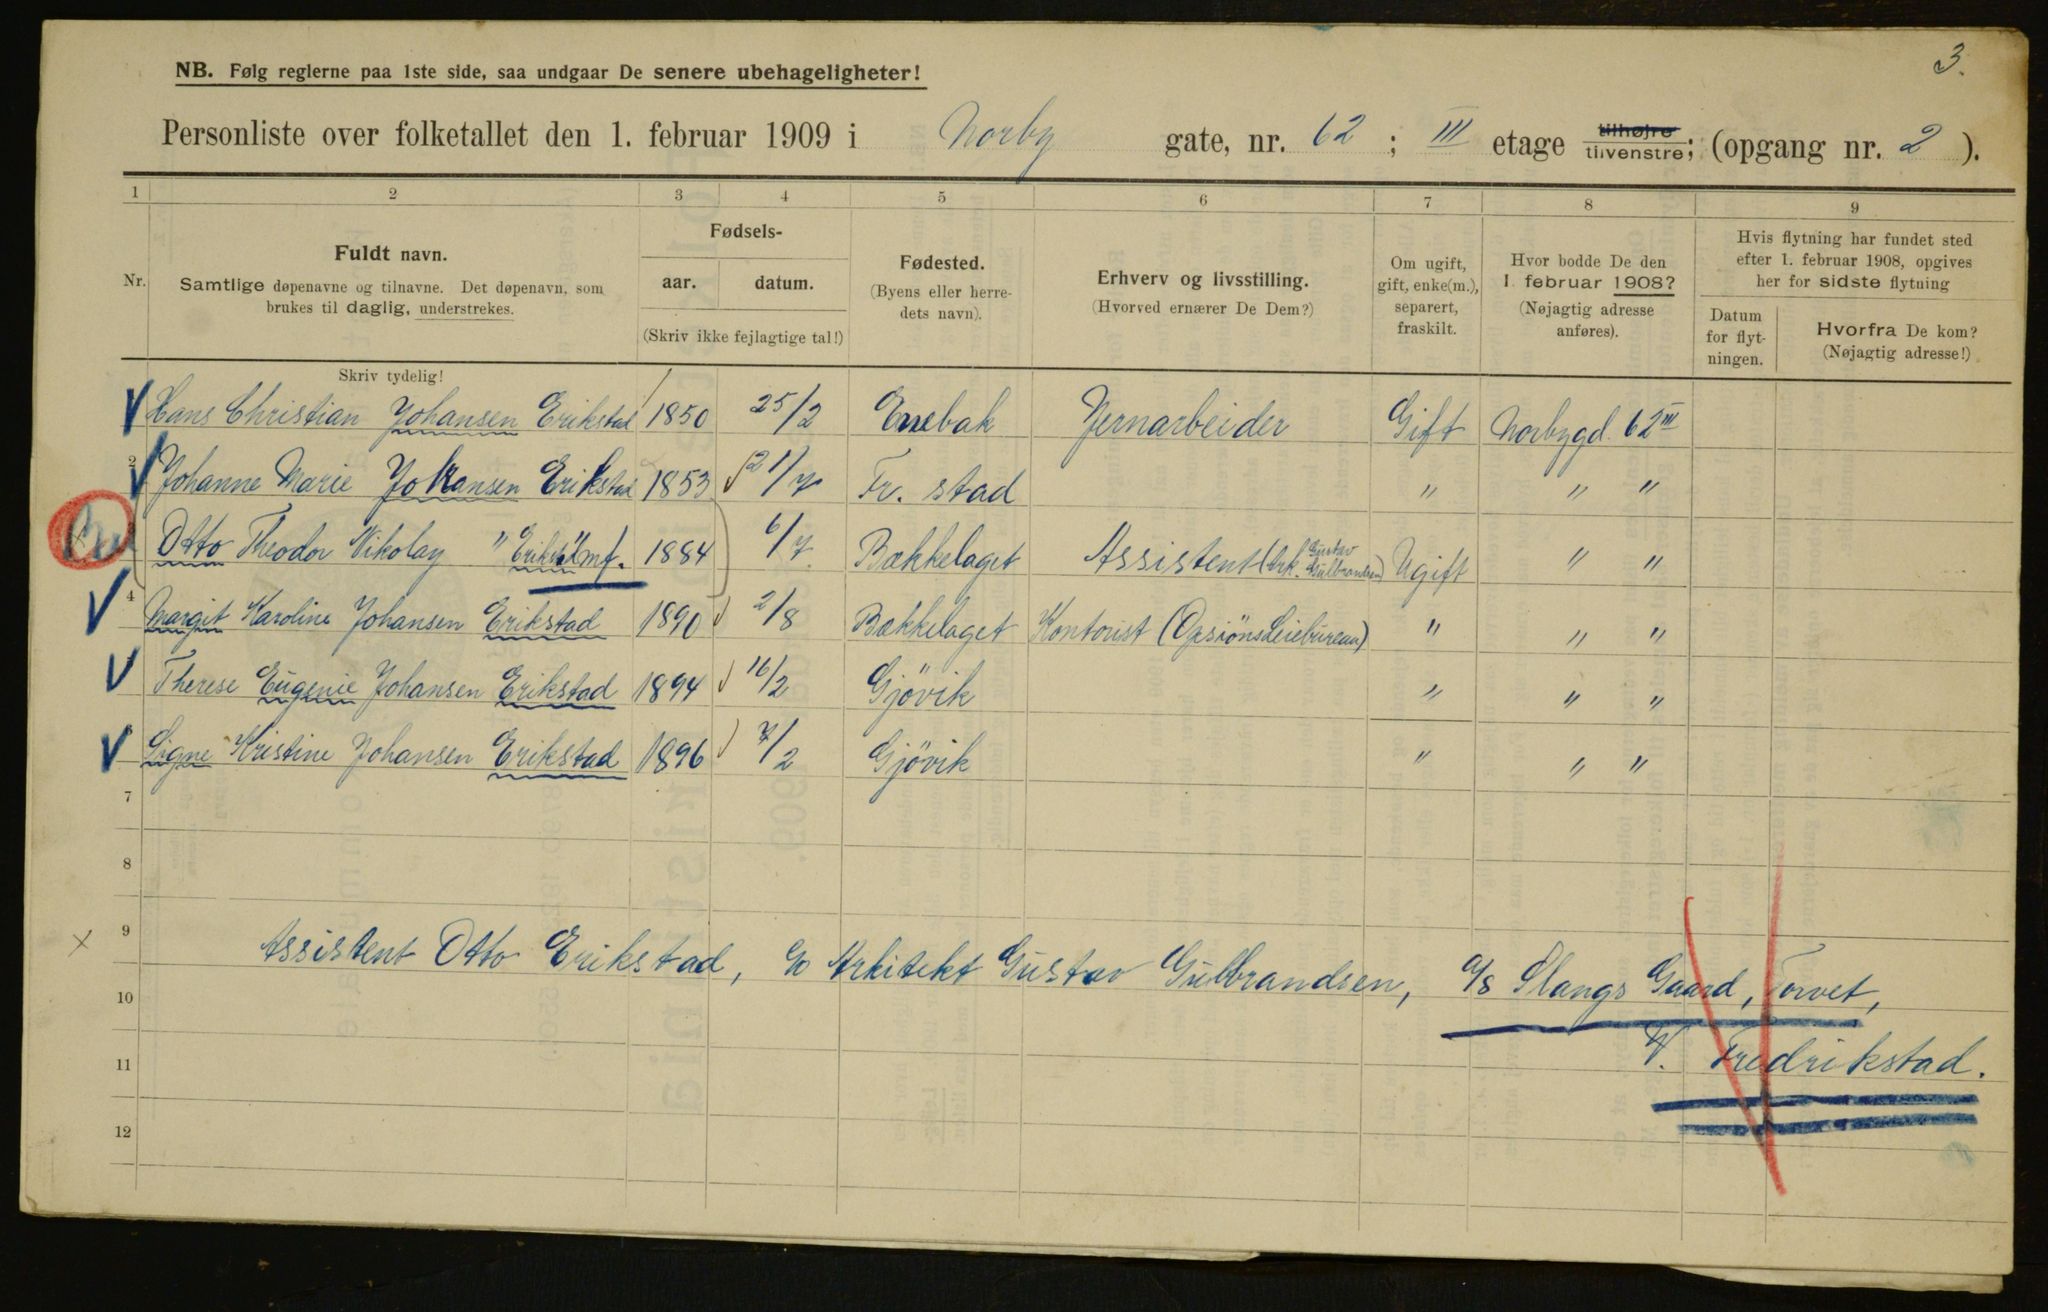 3.
NB. Følg reglerne paa 1ste side, saa undgaar De senere ubehageligheter!
Personliste over folketallet den 1. februar 1909 i Norby gate, nr. 62 ; III etage tilhøjre tilvenstre; (opgang nr. 2 ).
1 2 3 4 5 6 7 8 9
Nr.
Fuldt navn.
Samtlige døpenavne og tilnavne. Det døpenavn, som
brukes til daglig, understrekes.
Fødsels-
aar. datum.
(Skriv ikke fejlagtige tal!)
Fødested.
(Byens eller herre-
dets navn).
Erhverv og livsstilling.
(Hvorved ernærer De Dem?)
Om ugift,
gift, enke(m.),
separert,
fraskilt.
Hvor bodde De den
1. februar 1908?
(Nøjagtig adresse
anføres).
Hvis flytning har fundet sted
efter 1. februar 1908, opgives
her for sidste flytning
Datum
for flyt-
ningen.
Hvorfra De kom?
(Nøjagtig adresse!)
Skriv tydelig!
Hans Christian Johansen Erikstad 1850 25/2 Enebak Jernarbeider Gift Norbygd. 62 III
2 Johanne Marie Johansen Erikstad 1853 21/7 Fr. stad " " "
3 Otto Theodor Nikolay " 1884 6/7 Bækkelaget Assistent (Ark. Gustav Gulbrandsen) Ugift " "
4 Margit Karoline Johansen Erikstad 1890 2/8 Bækkelaget Kontorist (Opsiöns Leiebureau) " " "
Therese Eugenie Johansen Erikstad 1894 16/2 Gjövik " " "
Signe Kristine Johansen Erikstad 1896 7/2 Gjövik " " "
7
8
9
x Assistent Otto Erikstad, c/o Arkitekt Gustav Gulbrandsen, A/S Slangs Gaard, Torvet,
10
V. Fredrikstad.
11
12